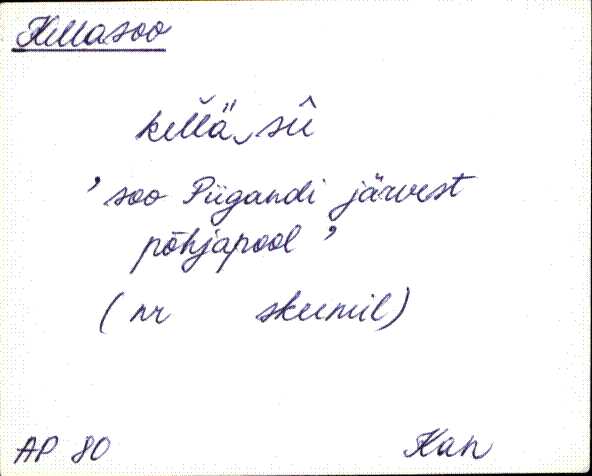 Kellasoo
kellä sû
' soo Piigandi järvest
põhjapool '
( nr skeemil)
AP 80 Kan